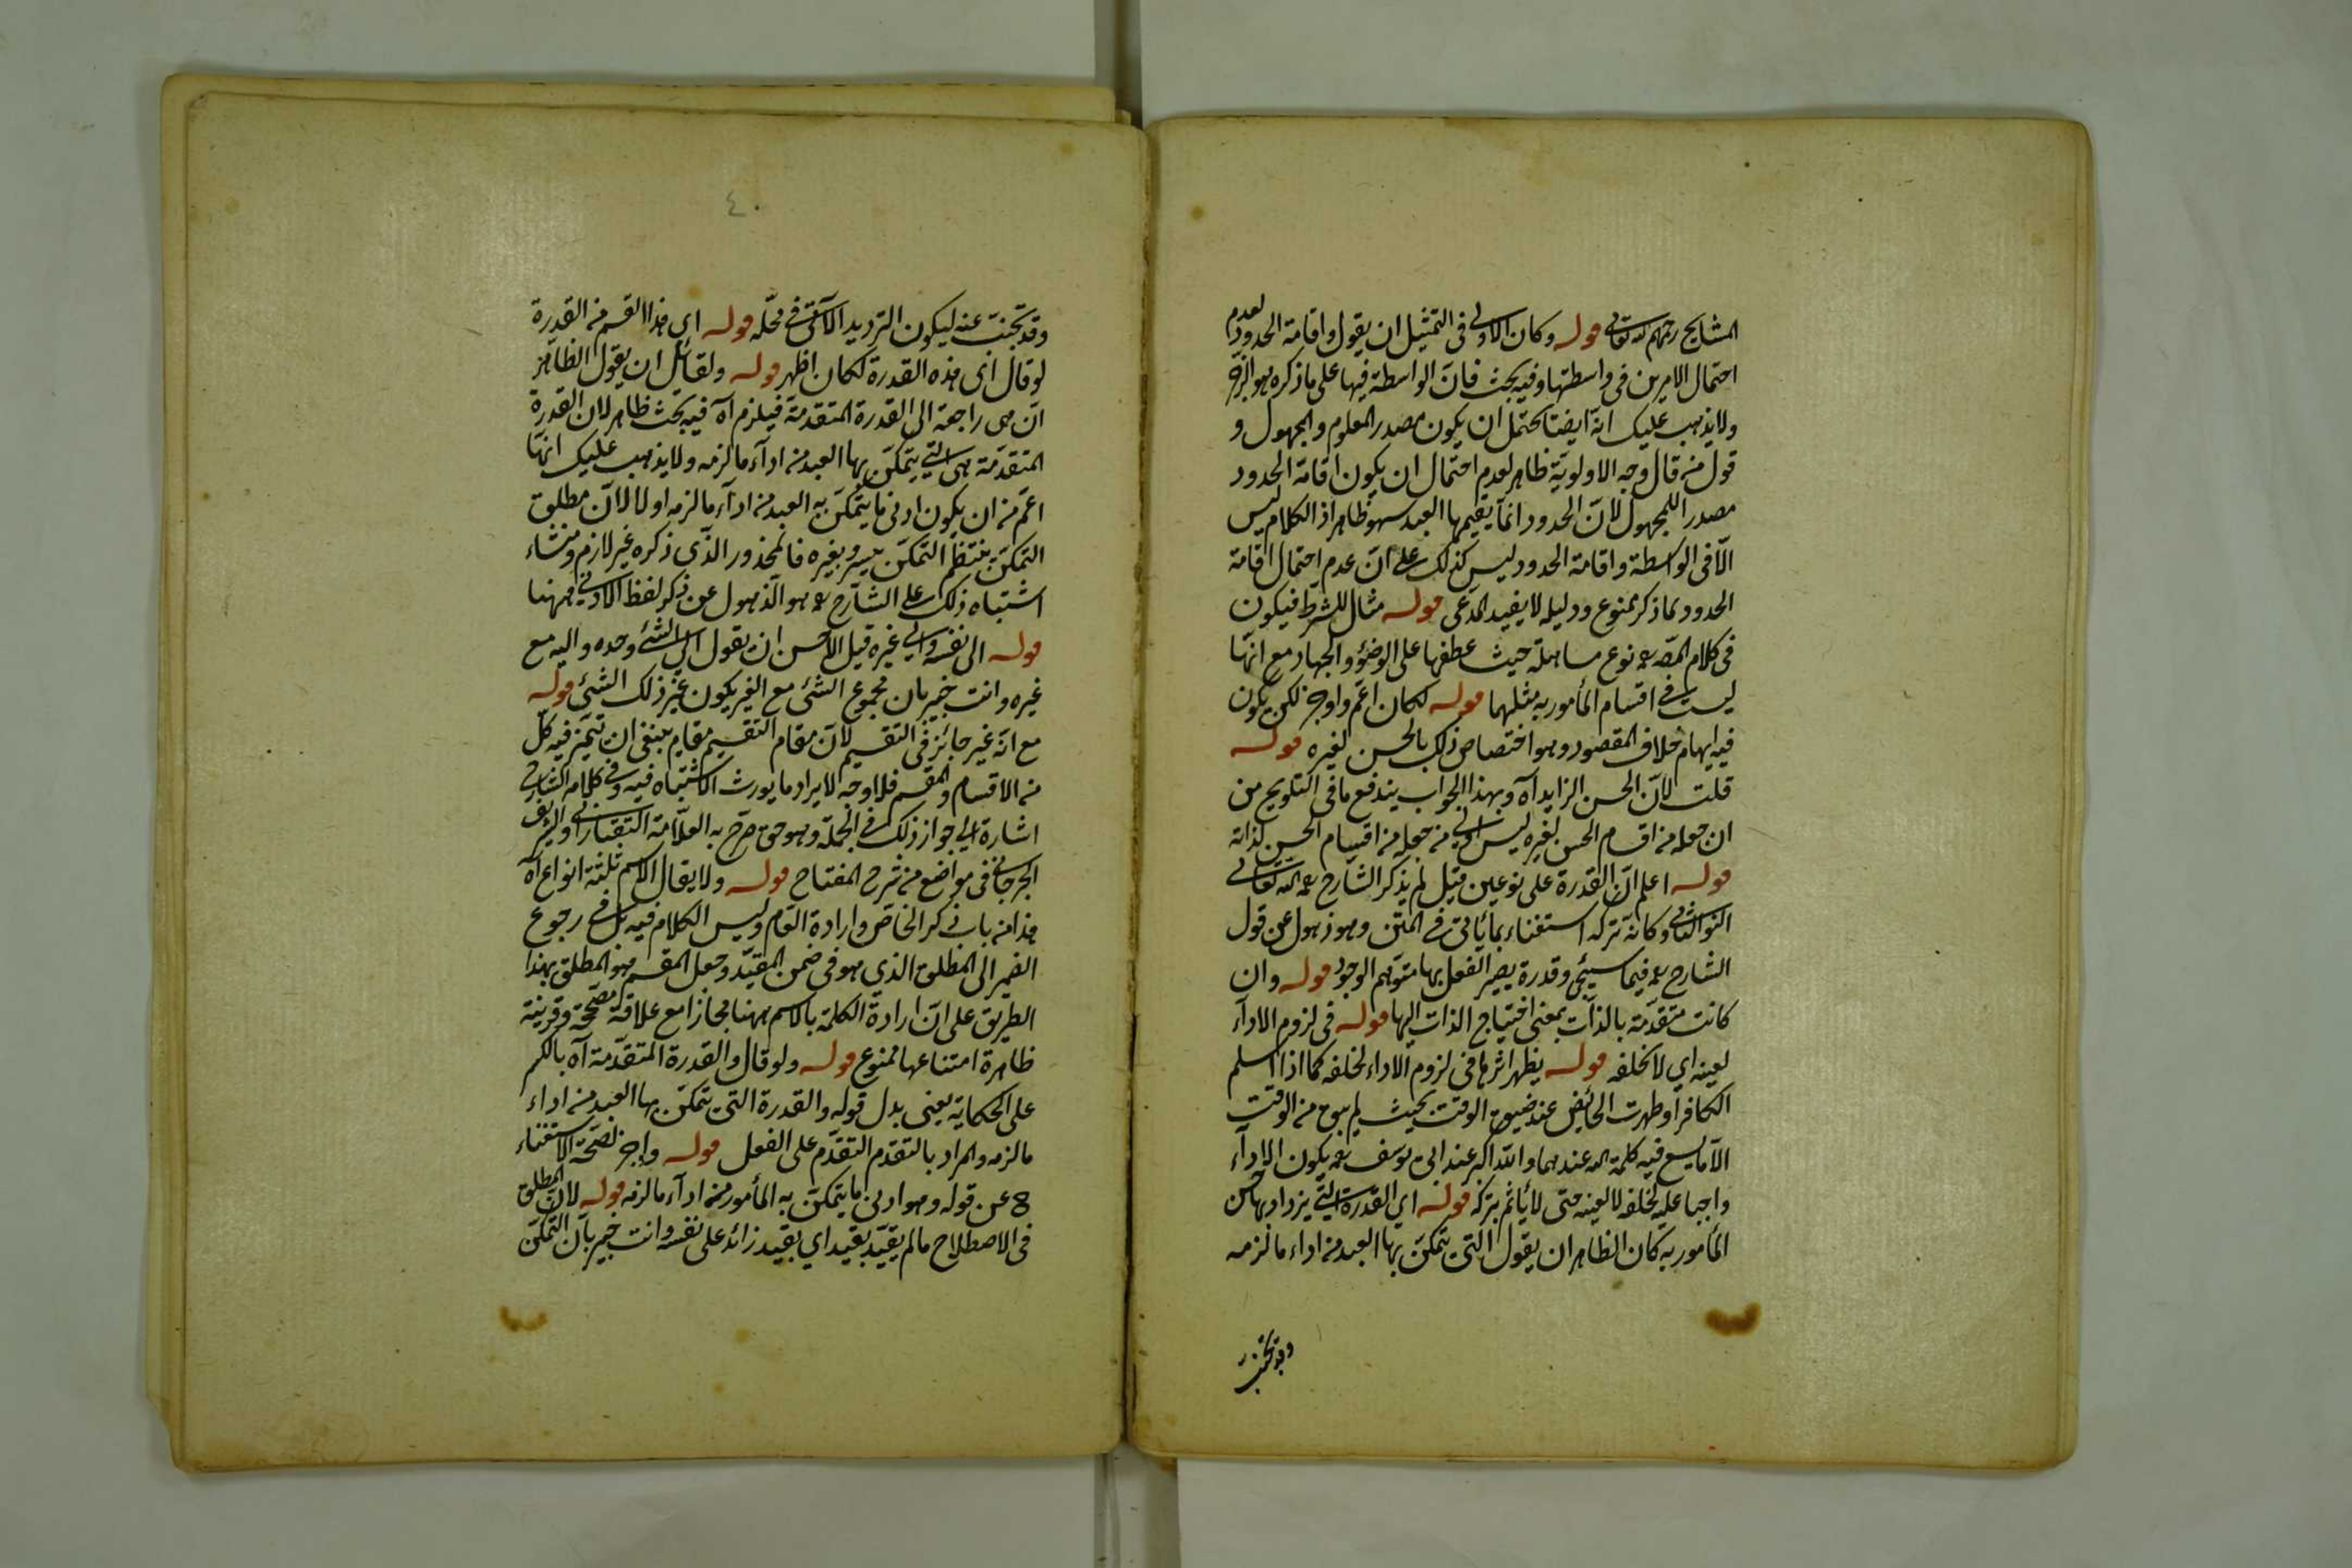 المشايخ رحمهم الله تعالى قوله وكان الاولى فى التمثيل ان يقول واقامة الحدود لعدم
احتمال الامرين فى واسطتها وفيه بحث فان الواسطة فيها على ما ذكره هو الزجر
ولا يذهب عليك انه ايضا يحتمل ان يكون مصدر المعلوم والمجهول و
قول من قال وجه الاولوية ظاهر لعدم احتمال ان يكون اقامة الحدود
مصدرا للمجهول لان الحدود انما يقيمها العبد سهو ظاهر اذ الكلام ليس
الا فى الواسطة واقامة الحدود ليس كذلك على ان عدم احتمال اقامة
الحدود لما ذكر ممنوع ودليله لا يفيد المدعى قوله مثال للشرط فيكون
فى كلام المص نوع مساهلة حيث عطفها على الوضوء والجهاد مع انها
ليست فى اقسام المأمور به مثلهما قوله لكان اعم واوجز لكن يكون
فيه ايهام خلاف المقصود وهو اختصاص ذلك بالحسن لغيره قوله
قلت لان الحسن الزايد آه وبهذا الجواب يندفع ما فى التلويح من
ان جعله من اقسام الحسن لغيره ليس اولى من جعله من اقسام الحسن لذاته
قوله اعلم ان القدرة على نوعين قيل لم يذكر الشارح رحمه الله تعالى
النوع الثانى وكانه تركه استغناء بما يأتى فى المتن وهو ذهول عن قول
الشارح فيما سيجئ وقدرة يصير الفعل بها متوهم الوجود قوله وان
كانت متقدمة بالذات بمعنى احتياج الذات اليها قوله فى لزوم الاداء
لعينه اي لا لخلفه قوله يظهر اثرها فى لزوم الاداء لخلفه كما اذا اسلم
الكافر او طهرت الحائض عند ضيق الوقت بحيث لم يبق من الوقت
الا ما يسع فيه كلمة الله عندهما والله اكبر عند ابى يوسف يكون الاداء
واجبا عليه لخلفه لا لعينه حتى لا يأثم بتركه قوله اي القدرة التى يزداد بها حسن
المأمور به كان الظاهر ان يقول التى يتمكن بها العبد من اداء ما لزمه
وقد تجنب
٤٠
وقد تجنب عنه ليكون الترديد الآتى فى محله قوله اى هذا القسم من القدرة
لو قال اى هذه القدرة لكان اظهر قوله ولقائل ان يقول الظاهر
ان هى راجعة الى القدرة المتقدمة فيلزم آه فيه بحث ظاهر لان القدرة
المتقدمة هى التى يتمكن بها العبد من اداء ما لزمه ولا يذهب عليك انها
اعم من ان يكون ادنى ما يتمكن به العبد من اداء ما لزمه او لا لان مطلق
التمكن ينتظم التمكن بيسر وبغيره فالمحذور الذى ذكره غير لازم ومنشاء
اشتباه ذلك على الشارح هو الذهول عن ذكر لفظ الادنى ههنا
قوله الى نفسه والى غيره قيل الاحسن ان يقول الى الشئ وحده واليه مع
غيره وانت خبير بان مجموع الشئ مع الغير يكون غير ذلك الشئ قوله
مع انه غير جائز فى التقسيم لان مقام التقسيم مقام ينبغى ان يتميز فيه كل
من الاقسام والمقسم فلا وجه لايراد ما يورث الاشتباه فيه وفى كلام الشارح
اشارة الى جواز ذلك فى الجملة وهو حق صرح به العلامة التفتازانى والشريف
الجرجانى فى مواضع من شرح المفتاح قوله ولا يقال الاسم ثلثة انواع آه
هذا من باب ذكر الخاص وارادة العام وليس الكلام فيه بل فى رجوع
الضمير الى المطلق الذى هو فى ضمن المقيد وجعل المقسم هو المطلق بهذا
الطريق على ان ارادة الكلمة بالاسم ههنا مجازا مع علاقة مصححة وقرينة
ظاهرة امتناعها ممنوع قوله ولو قال والقدرة المتقدمة آه بالكسر
على الحكاية يعنى بدل قوله والقدرة التى يتمكن بها العبد من اداء
ما لزمه والمراد بالتقدم التقدم على الفعل قوله واوجز لصحة الاستغناء
ح عن قوله وهو ادنى ما يتمكن به المأمور من اداء ما لزمه قوله لان المطلق
فى الاصطلاح ما لم يقيد بقيد اي بقيد زائد على نفسه وانت خبير بان التمكن